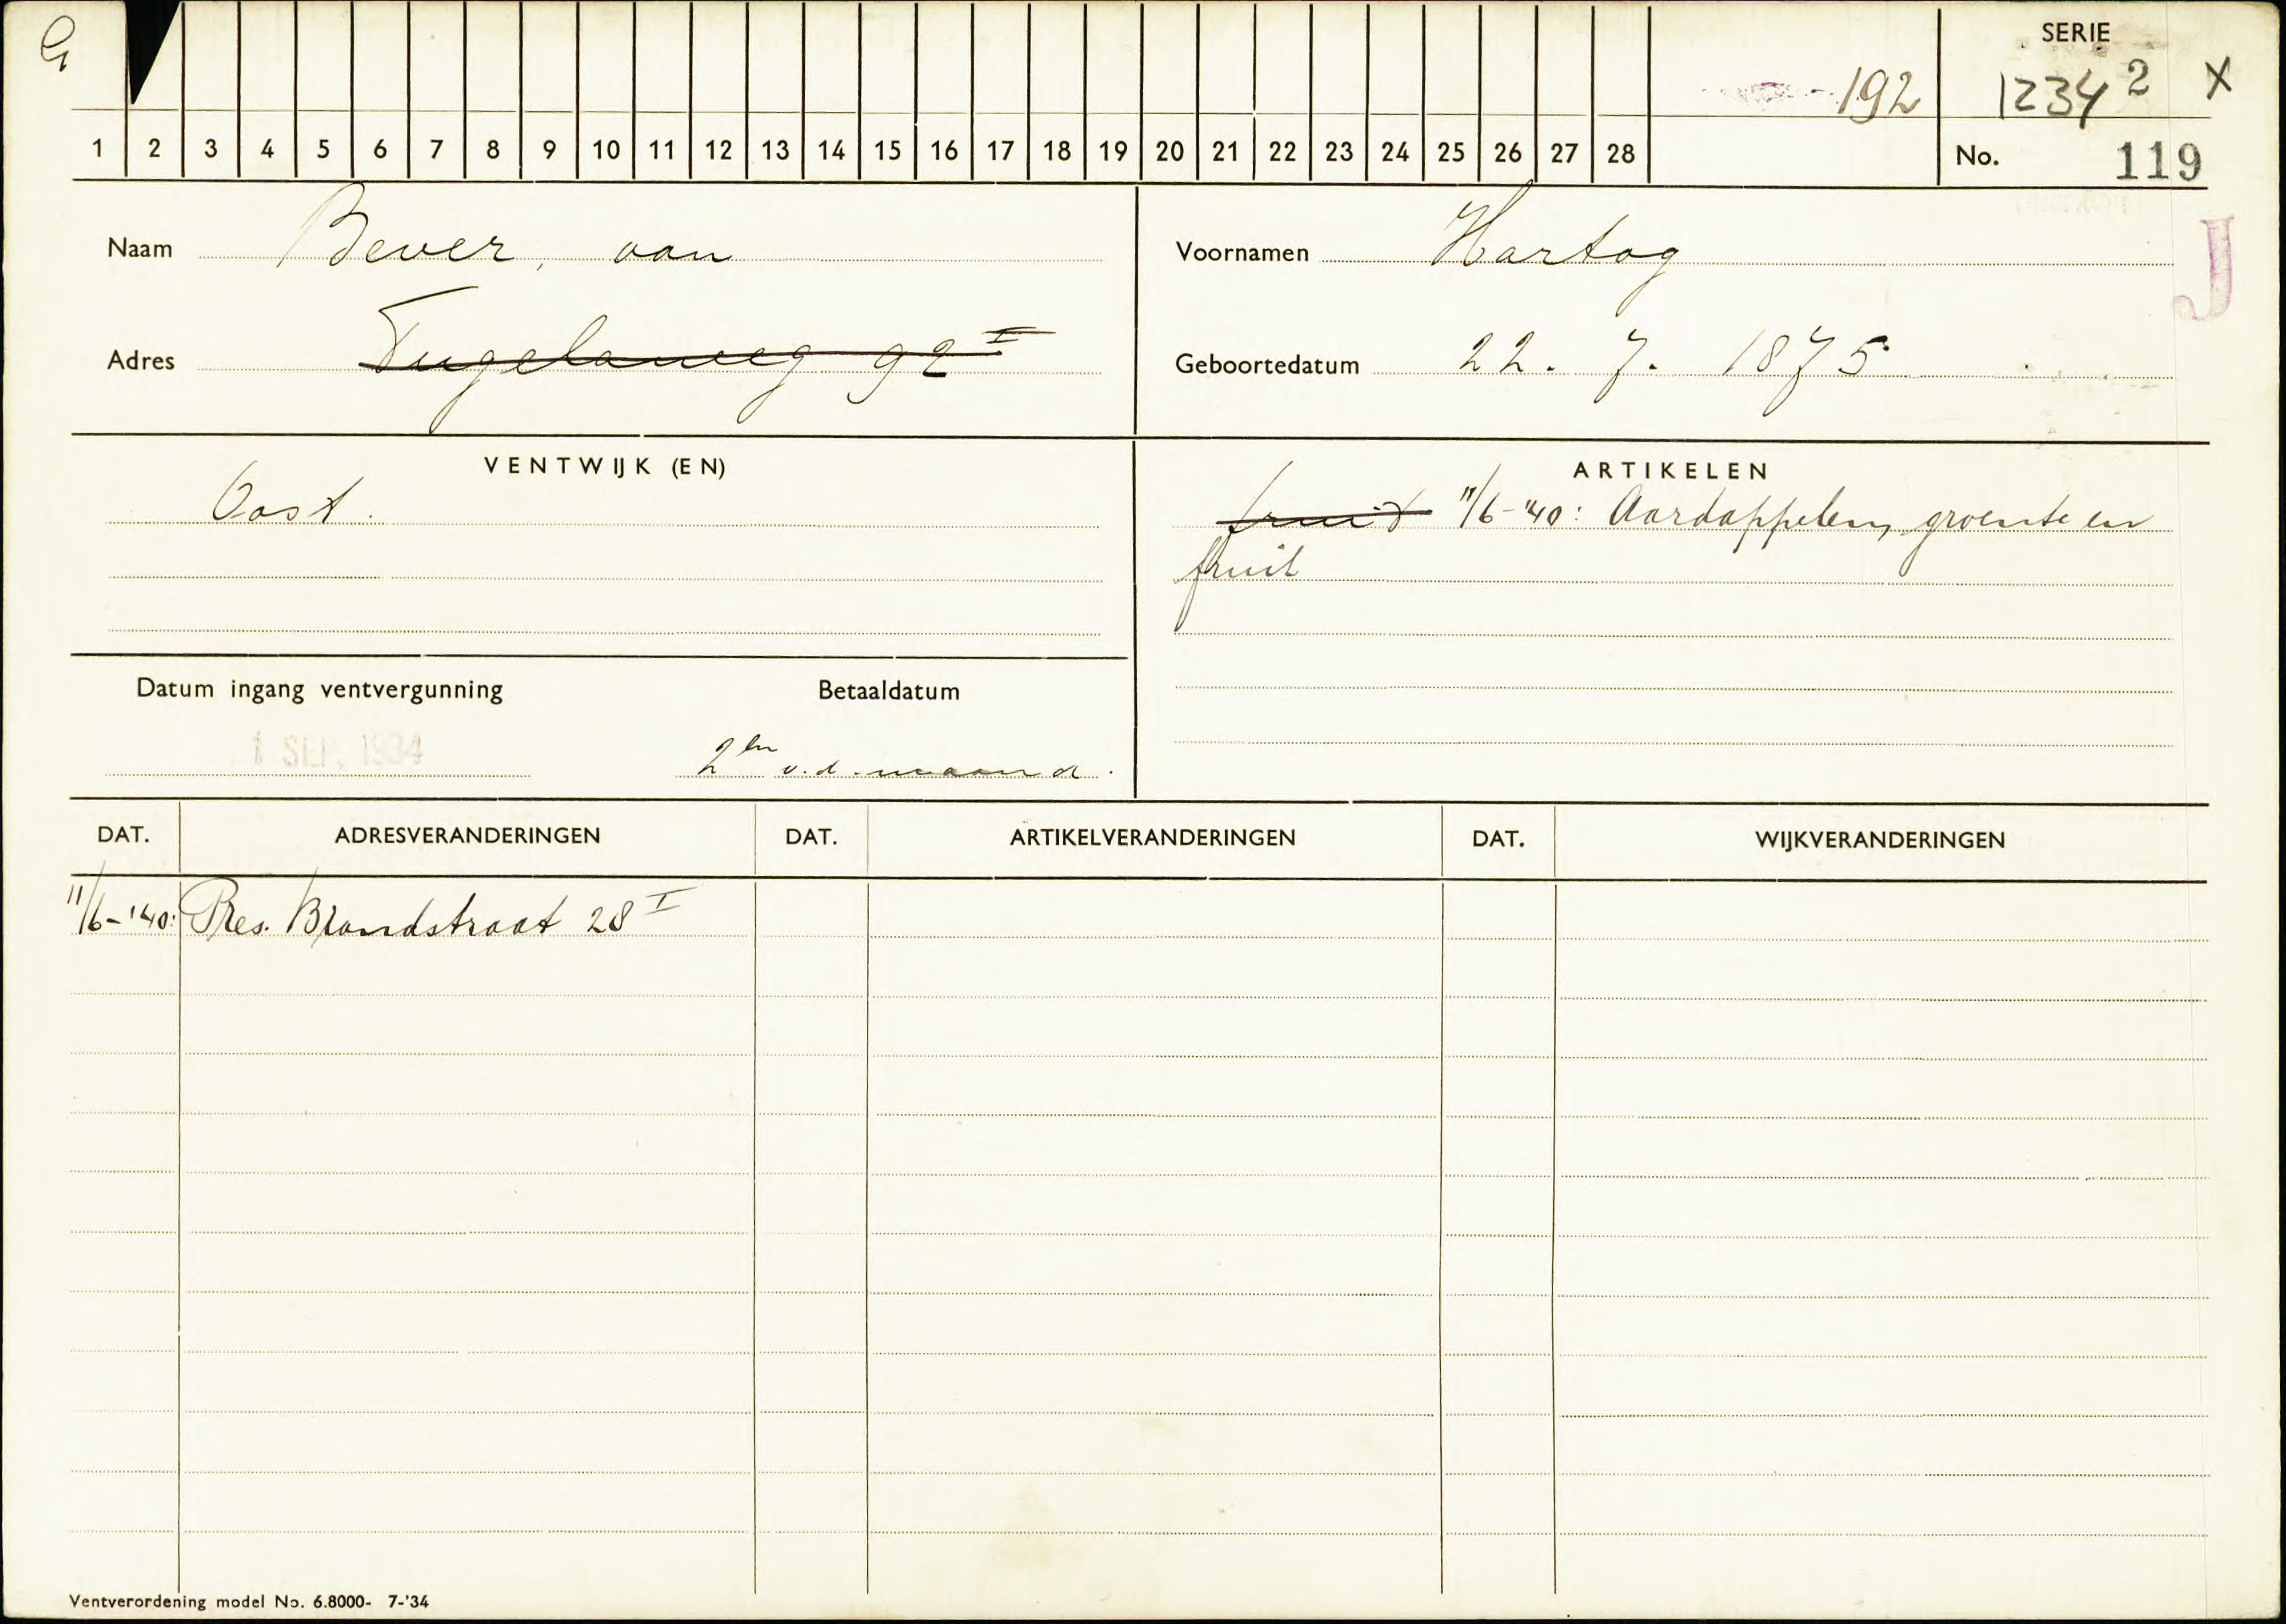 G SERIE
192 1234 2 X
1 2 3 4 5 6 7 8 9 10 11 12 13 14 15 16 17 18 19 20 21 22 23 24 25 26 27 28 No. 119
Naam Bever, van Voornamen Hartog
J
Adres Tugelaweg 92 I Geboortedatum 22. 7. 1875
VENTWIJK (EN) ARTIKELEN
Oost. fruit 11/6-'40: Aardappelen, groente en
fruit
Datum ingang ventvergunning Betaaldatum
1 SEP. 1934 2en v.d. maand.
DAT. ADRESVERANDERINGEN DAT. ARTIKELVERANDERINGEN DAT. WIJKVERANDERINGEN
11/6-'40: Pres. Brandstraat 28 I
Ventverordening model No. 6.8000- 7-'34